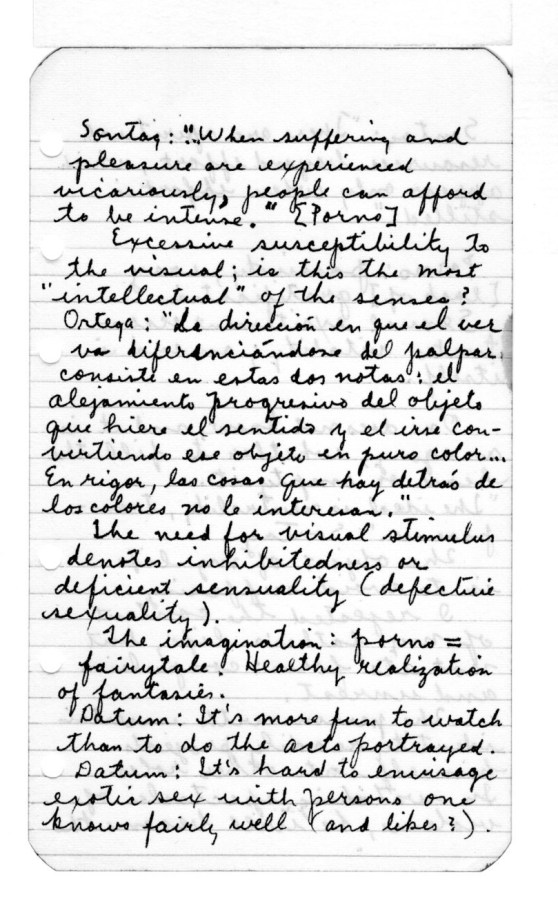 Sontag: "...When suffering and
pleasure are experienced
vicariously, people can afford
to be intense." [Porno]
Excessive susceptibility to
the visual; is this the most
"intellectual" of the senses?
Ortega: "La dirección en que el ver
va diferenciándose del palpar
consiste en estas dos notas: el
alejamiento progresivo del objeto
que hiere el sentido y el irse con-
virtiendo ese objeto en puro color...
En rigor, las cosas que hay detrás de
los colores no le interesan."
The need for visual stimulus
denotes inhibitedness or
deficient sensuality (defective
sexuality).
The imagination: porno =
fairytale. Healthy realization
of fantasies.
Datum: It's more fun to watch
than to do the acts portrayed.
Datum: It's hard to envisage
exotic sex with persons one
knows fairly well (and likes?).